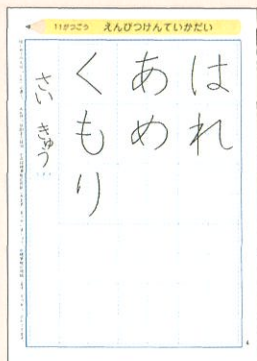 11がつごう えんぴつけんていかだい
はれ
あめ
くもり
さい きゅう